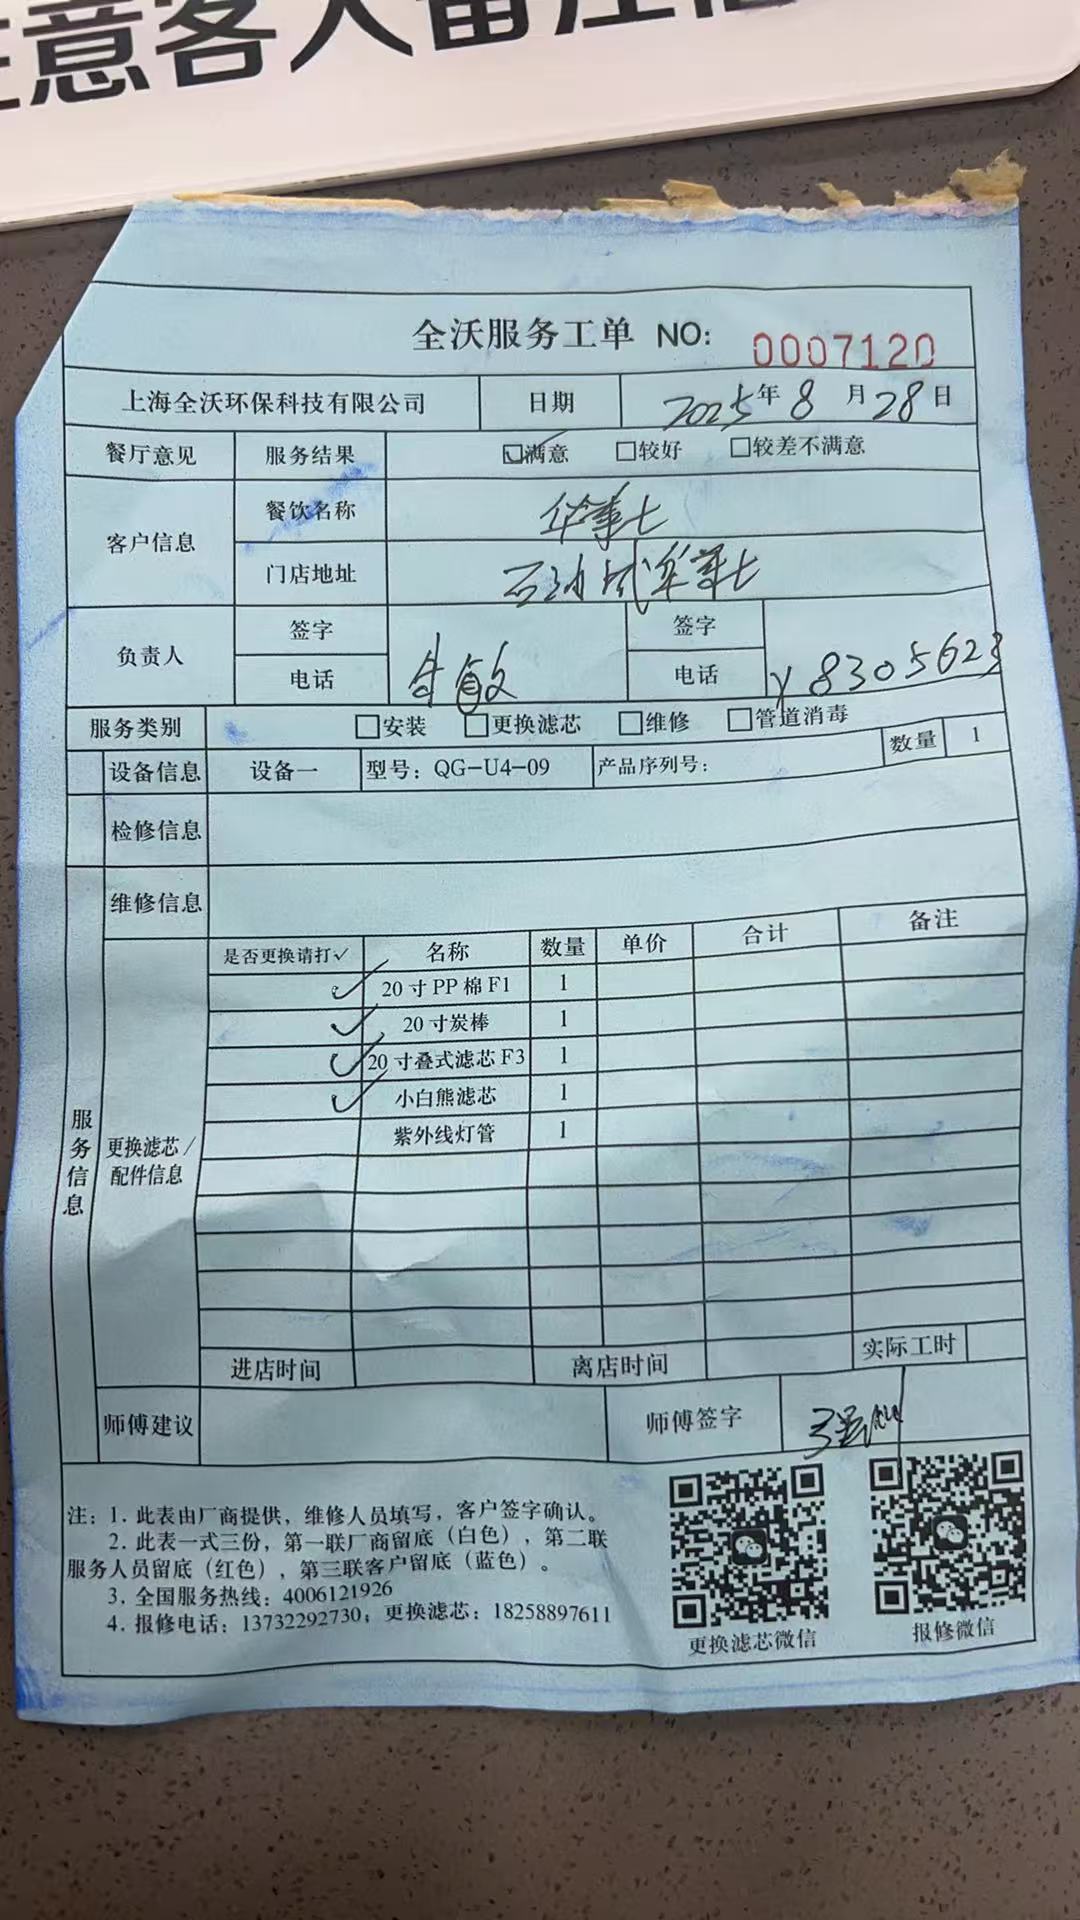 意客人备注信
全沃服务工单 NO: 0007120
上海全沃环保科技有限公司 日期 2025年8月28日
餐厅意见 服务结果 ☑满意 □较好 □较差不满意
客户信息 餐饮名称 华莱士
门店地址 华莱士
负责人 签字 签字
电话 电话 18305623
服务类别 □安装 □更换滤芯 □维修 □管道消毒
设备信息 设备一 型号：QG-U4-09 产品序列号： 数量 1
检修信息
维修信息
服务信息
更换滤芯/配件信息
是否更换请打✓ 名称 数量 单价 合计 备注
✓ 20寸PP棉F1 1
✓ 20寸炭棒 1
✓ 20寸叠式滤芯F3 1
✓ 小白熊滤芯 1
紫外线灯管 1
进店时间 离店时间 实际工时
师傅建议 师傅签字
注：1. 此表由厂商提供，维修人员填写，客户签字确认。
2. 此表一式三份，第一联厂商留底（白色），第二联
服务人员留底（红色），第三联客户留底（蓝色）。
3. 全国服务热线：4006121926
4. 报修电话：13732292730；更换滤芯：18258897611
更换滤芯微信 报修微信